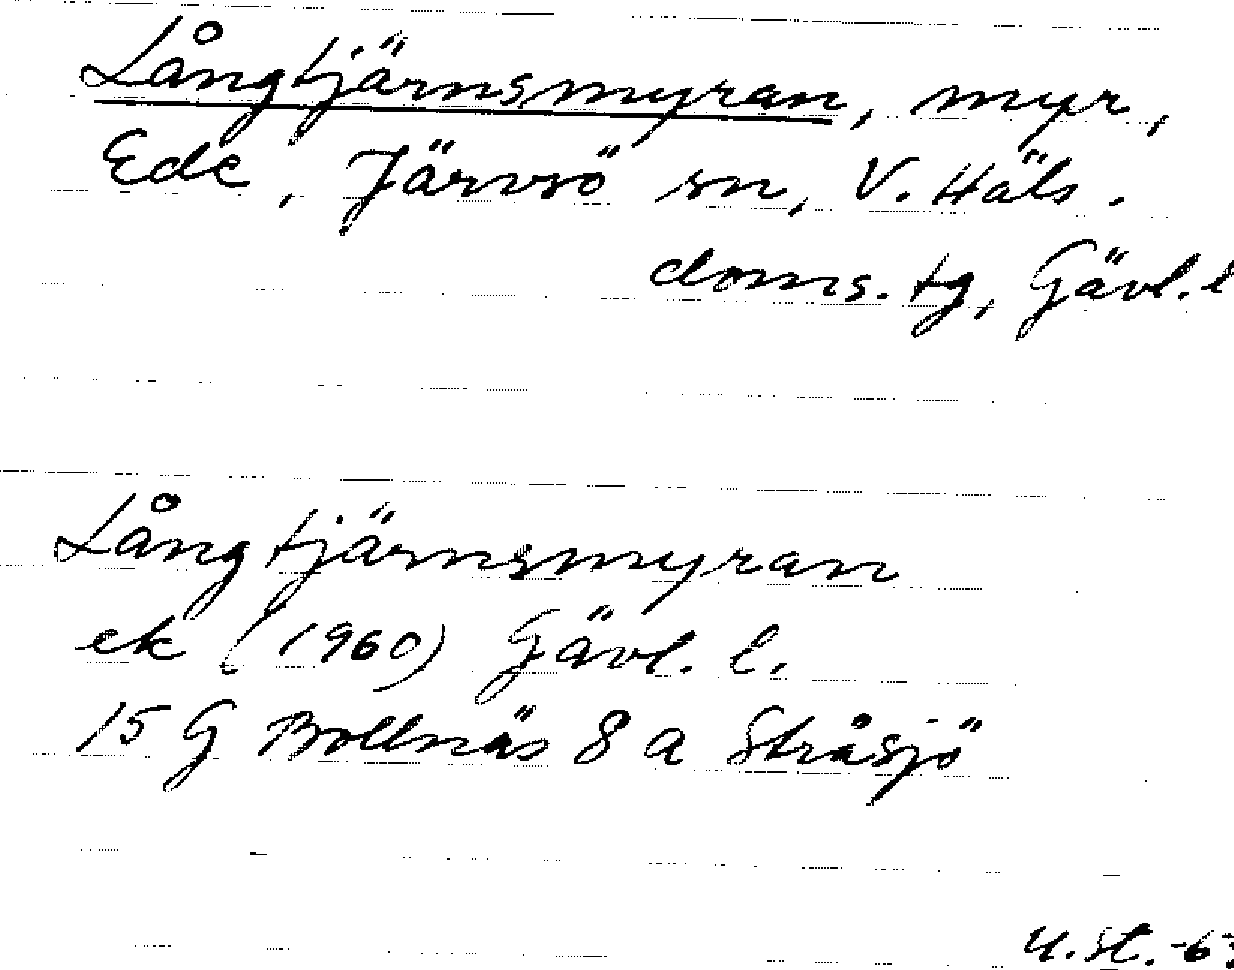 Långtjärnsmyran, myr,
Ede, Järvsö sn, V. Häls.
doms. tg, Gävl. l
Långtjärnsmyran
ek (1960) Gävl. l.
15 G Bollnäs 8 a Stråsjö
U.St. -63